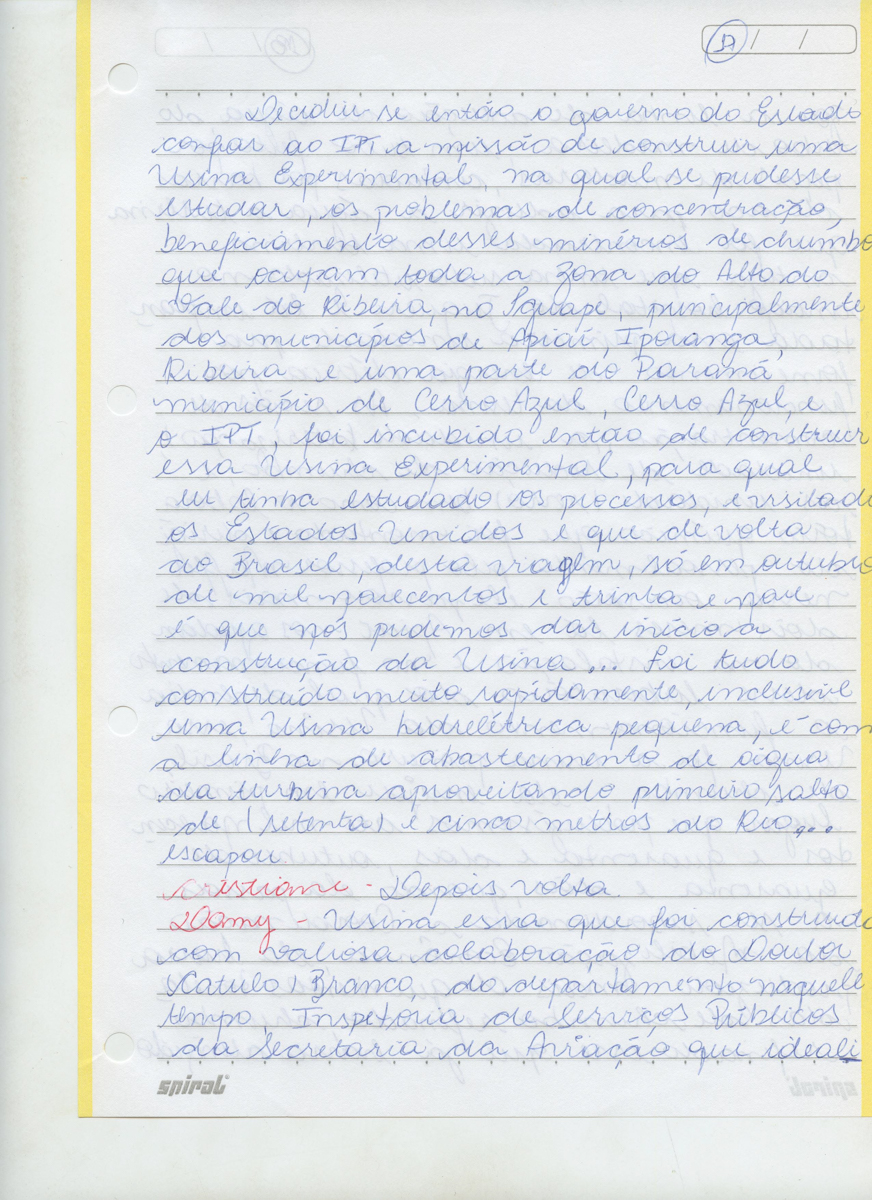 Decidiu-se então o governo do Estado
confiar ao IPT a missão de construir uma
Usina Experimental, na qual se pudesse
estudar, os problemas de concentração,
beneficiamento desses minérios de chumbo
que ocupam toda a zona do Alto do
Vale do Ribeira, no Iguape, principalmente
dos municípios de Apiaí, Iporanga,
Ribeira e uma parte do Paraná
município de Cerro Azul, Cerro Azul, e
o IPT, foi incubido então de construir
essa Usina Experimental, para qual
eu tinha estudado os processos, e visitado
os Estados Unidos e que de volta
ao Brasil, desta viagem, só em outubro
de mil novecentos e trinta e nove
é que nós pudemos dar início a
construção da Usina... Foi tudo
construído muito rapidamente, inclusive
uma Usina hidrelétrica pequena, e com
a linha de abastecimento de água
da turbina aproveitando primeiro salto
de (setenta) e cinco metros do Rio...
escapou.
Cristiane - Depois volta.
Damy - Usina essa que foi construida
com valiosa colaboração do Doutor
(Catulo) Branco, do departamento naquele
tempo, Inspetoria de Serviços Públicos
da Secretaria da Aviação que ideali
spiral